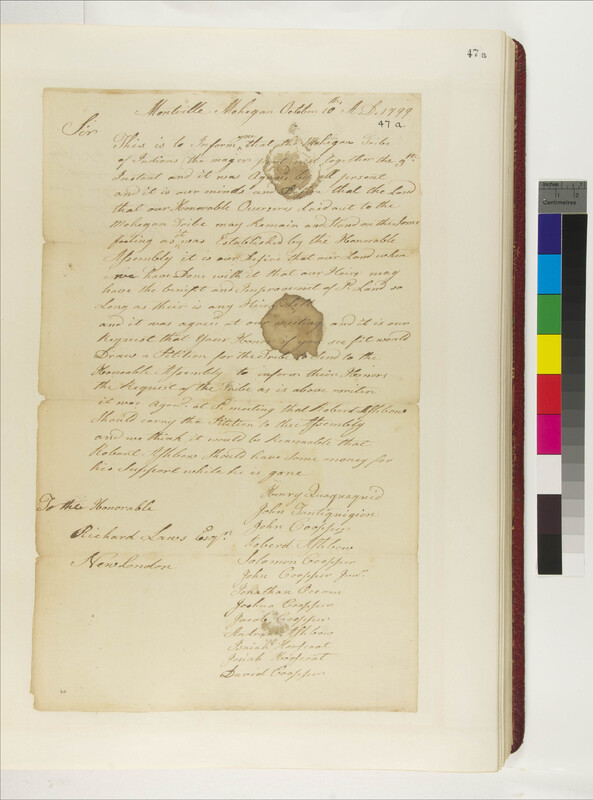 47a
Montville Mohegan October 10th A.D. 1799
47a
Sir
This is to Inform you that the Mohegan Tribe
of Indians the magor together the 9th
Instant and it was Agreed by all persent
and it is our minds and that the Land
that our Honorable Overseers laid out to the
Mohegan Tribe may Remain and Stand on the Same
footing as it was Established by the Honorable
Assembly it is our Desire that our Land when
we have Done with it that our Heirs may
have the benifit and Improvement of sd Land so
Long as their is any Heirs Left
and it was agreed at our meeting and it is our
Request that Your Honor if you see fit would
Draw a Petition for the Tribe to send to the
Honorable Assembly to inform their Honors
the Request of the Tribe as is above writen
it was Agred at sd meeting that Robert Ashbow
Should carry the Petition to the Assembly
and we think it would be Reasonable that
Robert Ashbow Should have Some money for
his Support while he is gone
Henry Quaquaquid
John Tantiquigion
John Coopper
Roberd Ashbow
Solomon Coopper
John Coopper Junr
Jonathan Occom
Joshua Coopper
Jacob Coopper
Andrew Ashbow
Isaiah Hoscoat
Josiah Hoscoat
David Coopper
To the Honorable
Richard Laws Esqr
New London